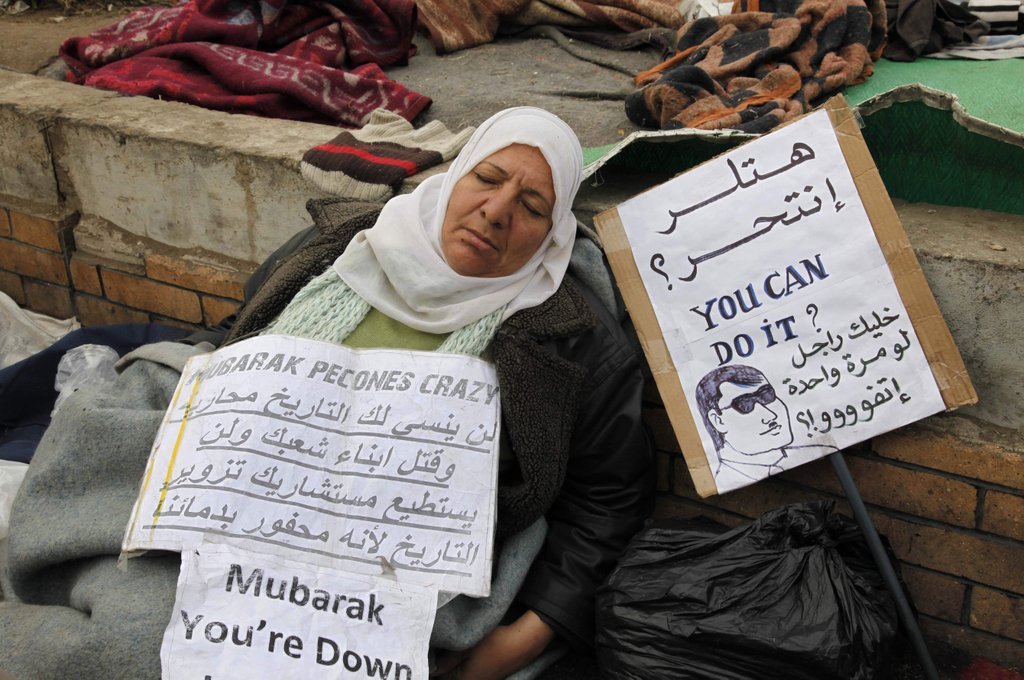 MUBARAK PECONES CRAZY
لن ينسى لك التاريخ محاربة
وقتل ابناء شعبك ولن
يستطيع مستشاريك تزوير
التاريخ لأنه محفور بدمائنا
Mubarak
You're Down
هتلر
إنتحر؟
YOU CAN
DO iT?
خليك راجل
لو مرة واحدة
إتفوووو!؟